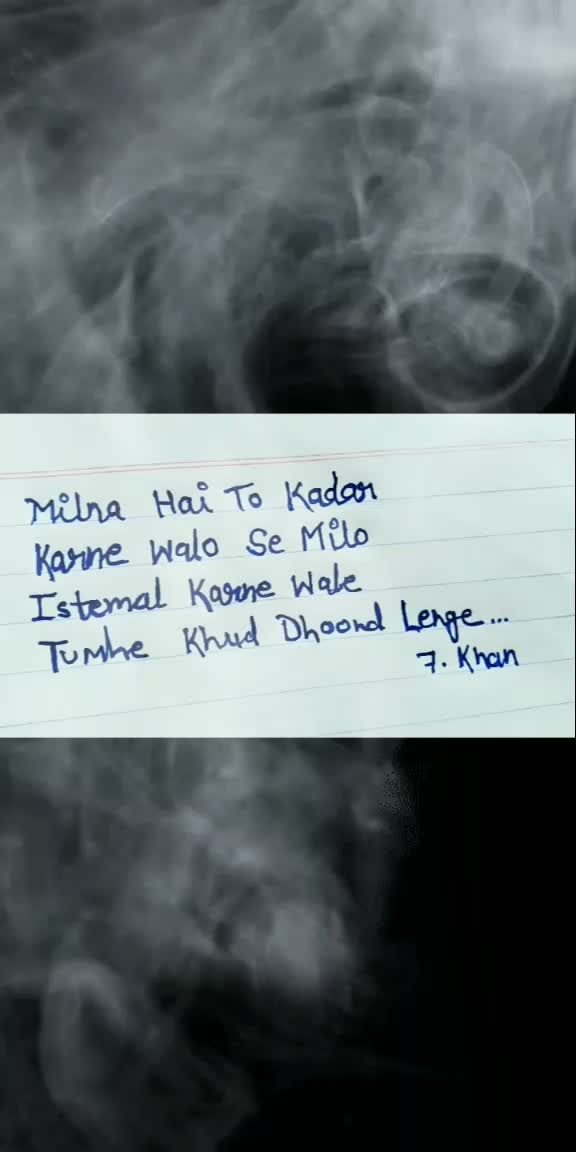 Milna Hai To Kadar
Karne Walo Se Milo
Istemal Karne Wale
Tumhe Khud Dhoond Lenge...
F. Khan